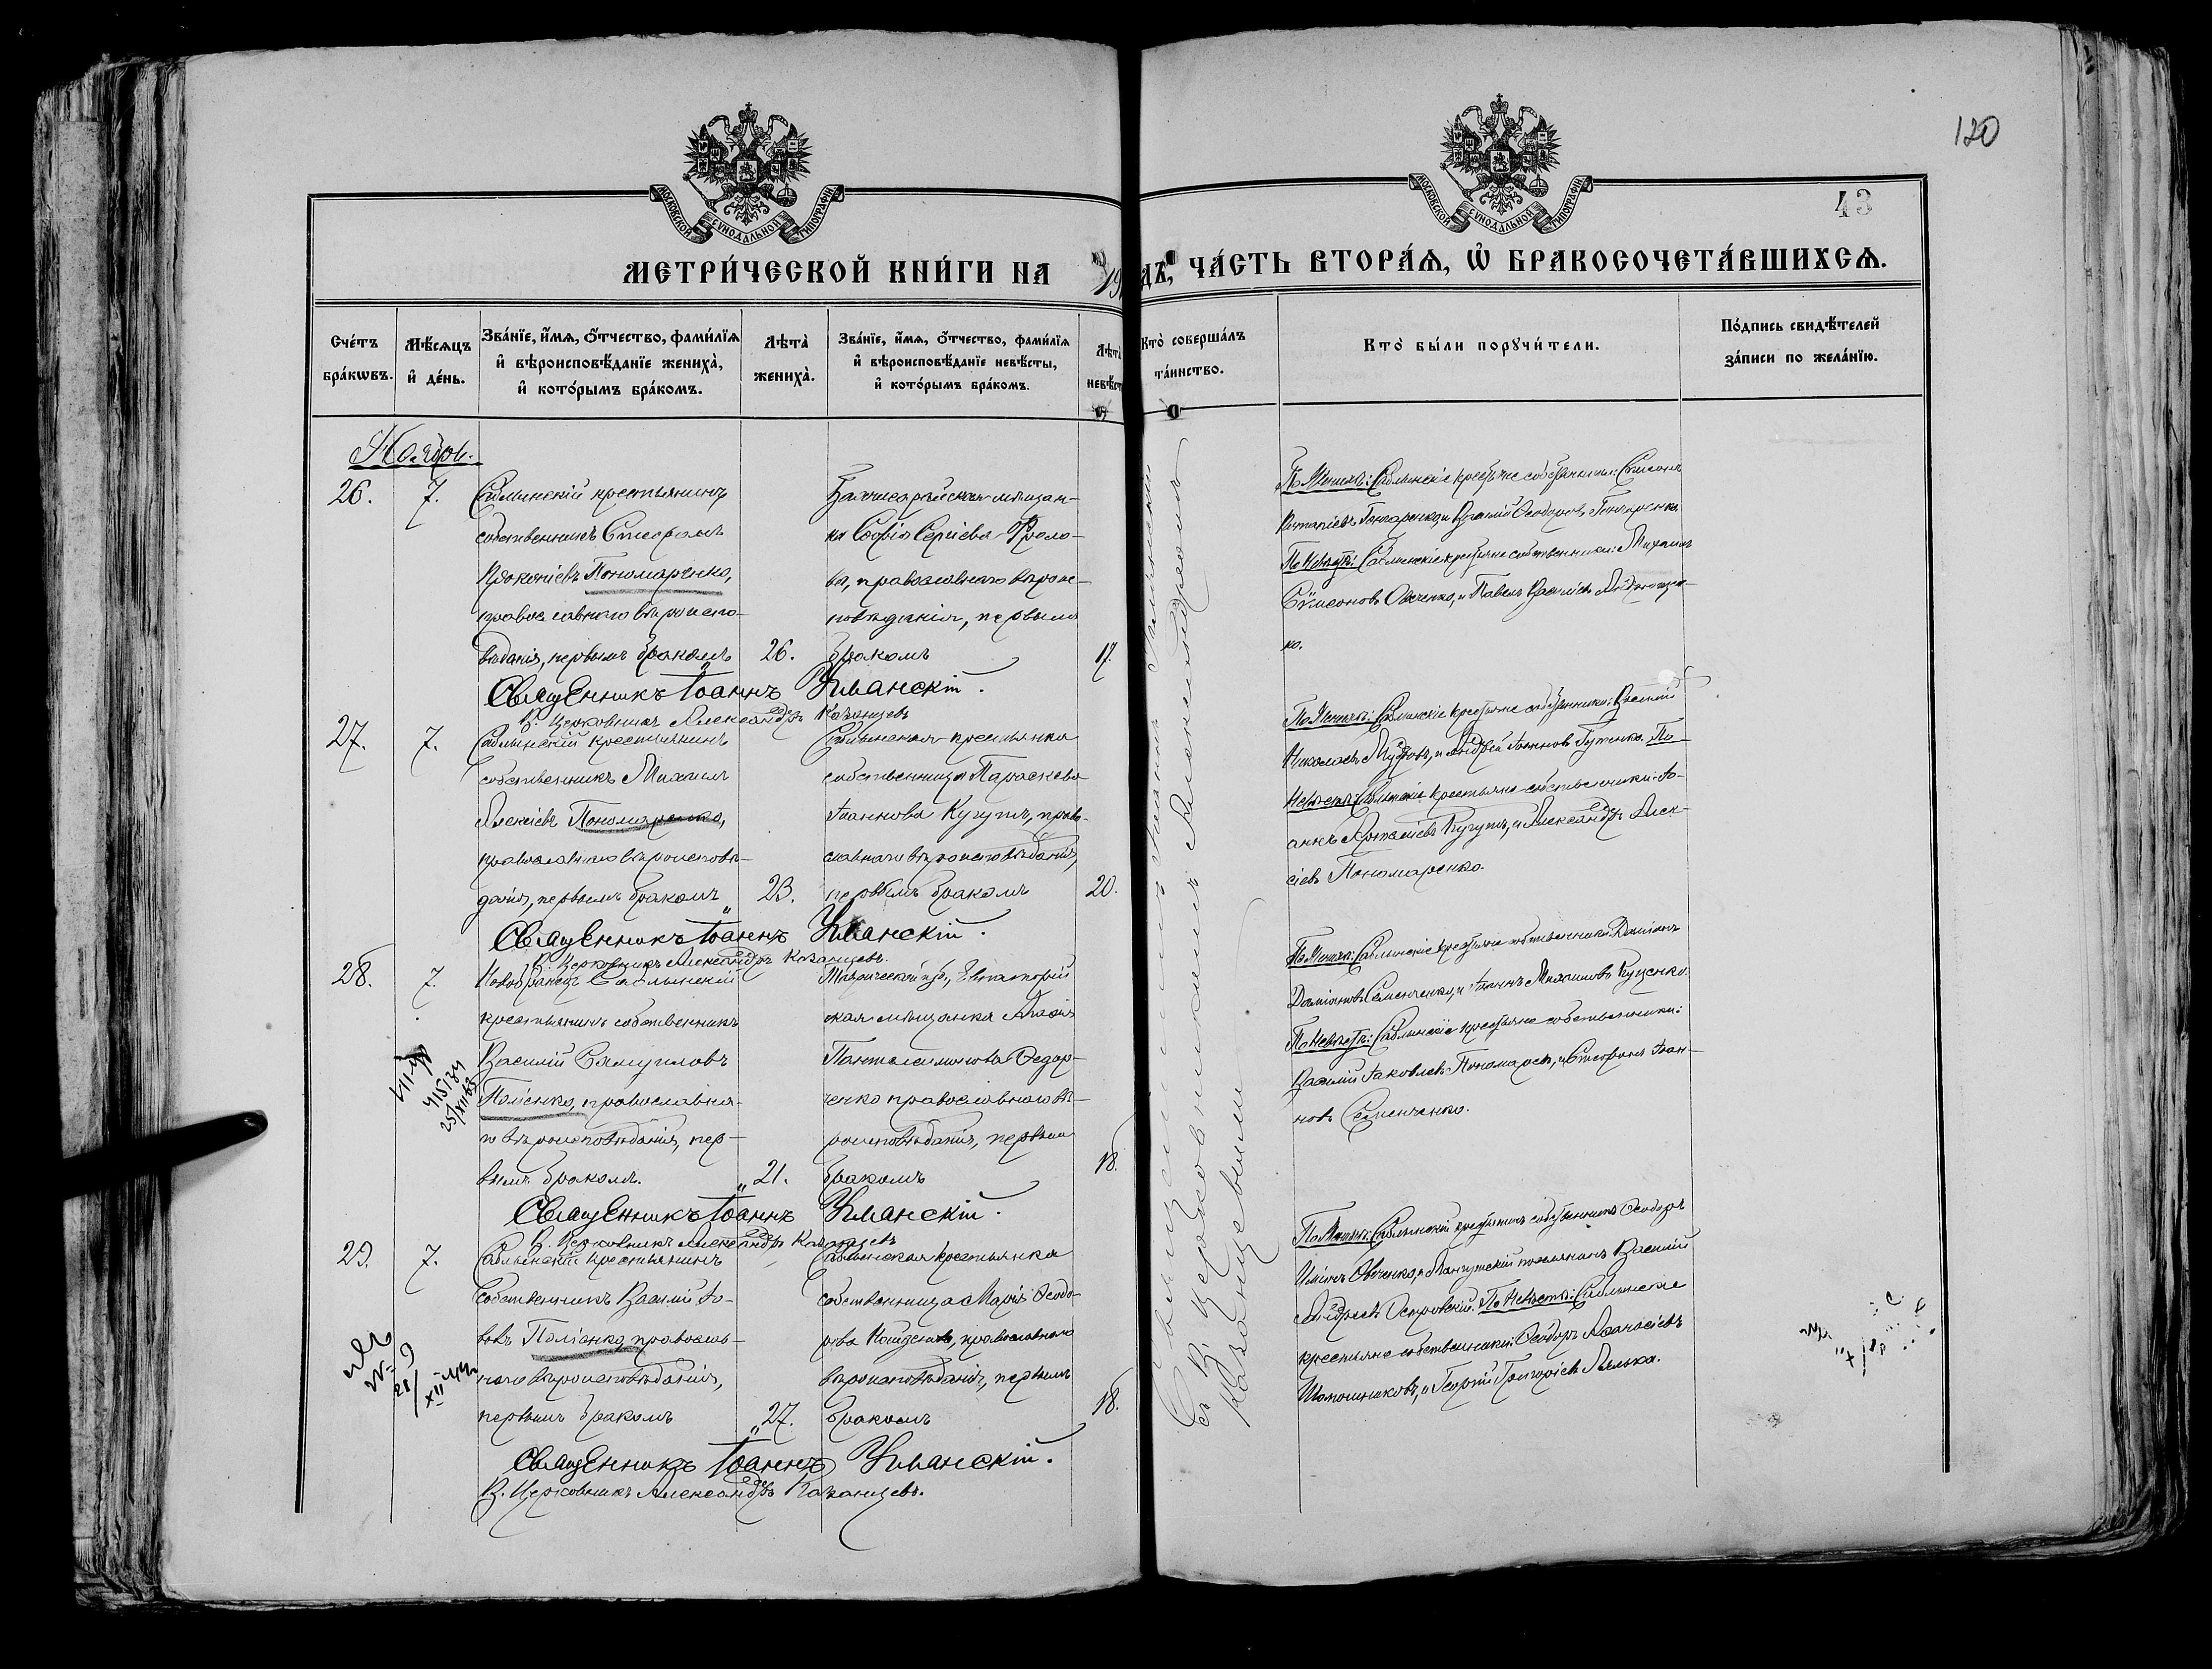 120
43
МОСКОВСКОЙ СѴНОДАЛЬНОЙ ТИПОГРАФІИ
МОСКОВСКОЙ СѴНОДАЛЬНОЙ ТИПОГРАФІИ
МЕТРИ́ЧЕСКОЙ КНИ́ГИ НА 19
ДЪ, ЧА́СТЬ ВТОРА́Ѧ, Ѡ҆ БРАКОСОЧЕТА́ВШИХСѦ.
Сче́тъ бра́кѡвъ.
Мѣ́сяцъ и҆ де́нь.
Зва́нїе, и҆́мѧ, о҆́тчество, фами́лїѧ и҆ вѣроисповѣ́данїе жениха̀, и҆ кото́рымъ бра́комъ.
Лѣта̀ жениха̀.
Зва́нїе, и҆́мѧ, о҆́тчество, фами́лїѧ и҆ вѣроисповѣ́данїе невѣ́сты, и҆ кото́рымъ бра́комъ.
Лѣта̀ невѣст
Кто̀ соверша́лъ та́инство.
Кто̀ бы́ли порꙋчи́тели.
По́дпись свидѣ́телей за́писи по жела́нїю.
Ноябрь.
26.
7.
Саблынскій крестьянинъ
собственникъ Стефанъ
Прокопіевъ Пономаренко,
православнаго вѣроиспо-
вѣданія, первымъ бракомъ
26.
Бахчисарайская мѣщан-
ка Софія Сергіева Фроло-
ва, православнаго вѣроис-
повѣданія, первымъ
бракомъ
17.
По Женихѣ: Саблынскіе крестьяне собственники: Симеонъ
Гончаренко, и Василій Ѳеодоровъ Гончаренко
По Невѣстѣ: Саблынскіе крестьяне собственники: Михаилъ
Симеоновъ Овченко, и Павелъ Василіевъ
ко.
Священникъ Іоаннъ Уманскій.
В. Церковникъ Александръ Казанцевъ
27.
7.
Саблынскій крестьянинъ
собственникъ Михаилъ
Алексіевъ Пономаренко,
православнаго вѣроисповѣ-
данія, первымъ бракомъ
23.
Саблынская крестьянка
собственница Параскева
Іоаннова Кугутъ, право-
славнаго вѣроисповѣданія,
первымъ бракомъ
20.
По Женихѣ: Саблынскіе крестьяне собственники: Василій
Николаевъ и Андрей Іоанновъ Гутенко. По
Невѣстѣ: Саблынскіе крестьяне собственники: Іо-
аннъ Кугутъ, и Александръ Алек-
сіевъ Пономаренко.
Священникъ Іоаннъ Уманскій.
В. Церковникъ Александръ Казанцевъ.
28.
7.
Новобранецъ Саблынскій
крестьянинъ собственникъ
Василій Самуиловъ
Поліенко, православна-
го вѣроисповѣданія, пер-
вымъ бракомъ.
21.
Таврической губ., Евпаторій
ская мѣщанка
Пантелеимонова Ѳедор-
ченко православнаго вѣ-
роисповѣданія, первымъ
бракомъ
18.
По Женихѣ: Саблынскіе крестьяне собственники: Даміанъ
Даміановъ Семенченко, и Іоаннъ Михаиловъ Куценко.
По Невѣстѣ: Саблынскіе крестьяне собственники:
Василій Іаковлевъ и Стефанъ Іоан-
новъ Семенченко.
Священникъ Іоаннъ Уманскій.
В. Церковникъ Александръ Казанцевъ
29.
7.
Саблынскій крестьянинъ
собственникъ Василій Іо-
вовъ Поліенко, православ-
наго вѣроисповѣданія,
первымъ бракомъ
27.
Саблынская крестьянка
собственница Марія Ѳеодо-
рова православнаго
вѣроисповѣданія, первымъ
бракомъ
18.
По Женихѣ: Саблынскій крестьянинъ собственникъ Ѳеодоръ
Овченко, и поселянинъ Василій
Андреевъ Островскій. По Невѣстѣ: Саблынскіе
крестьяне собственники: Ѳеодоръ Аѳанасіевъ
и Георгій Григоріевъ
Священникъ Іоаннъ Уманскій.
В. Церковникъ Александръ Казанцевъ.
Священникъ Іоаннъ Уманскій
съ В. церковникомъ Александромъ
Казанцевымъ